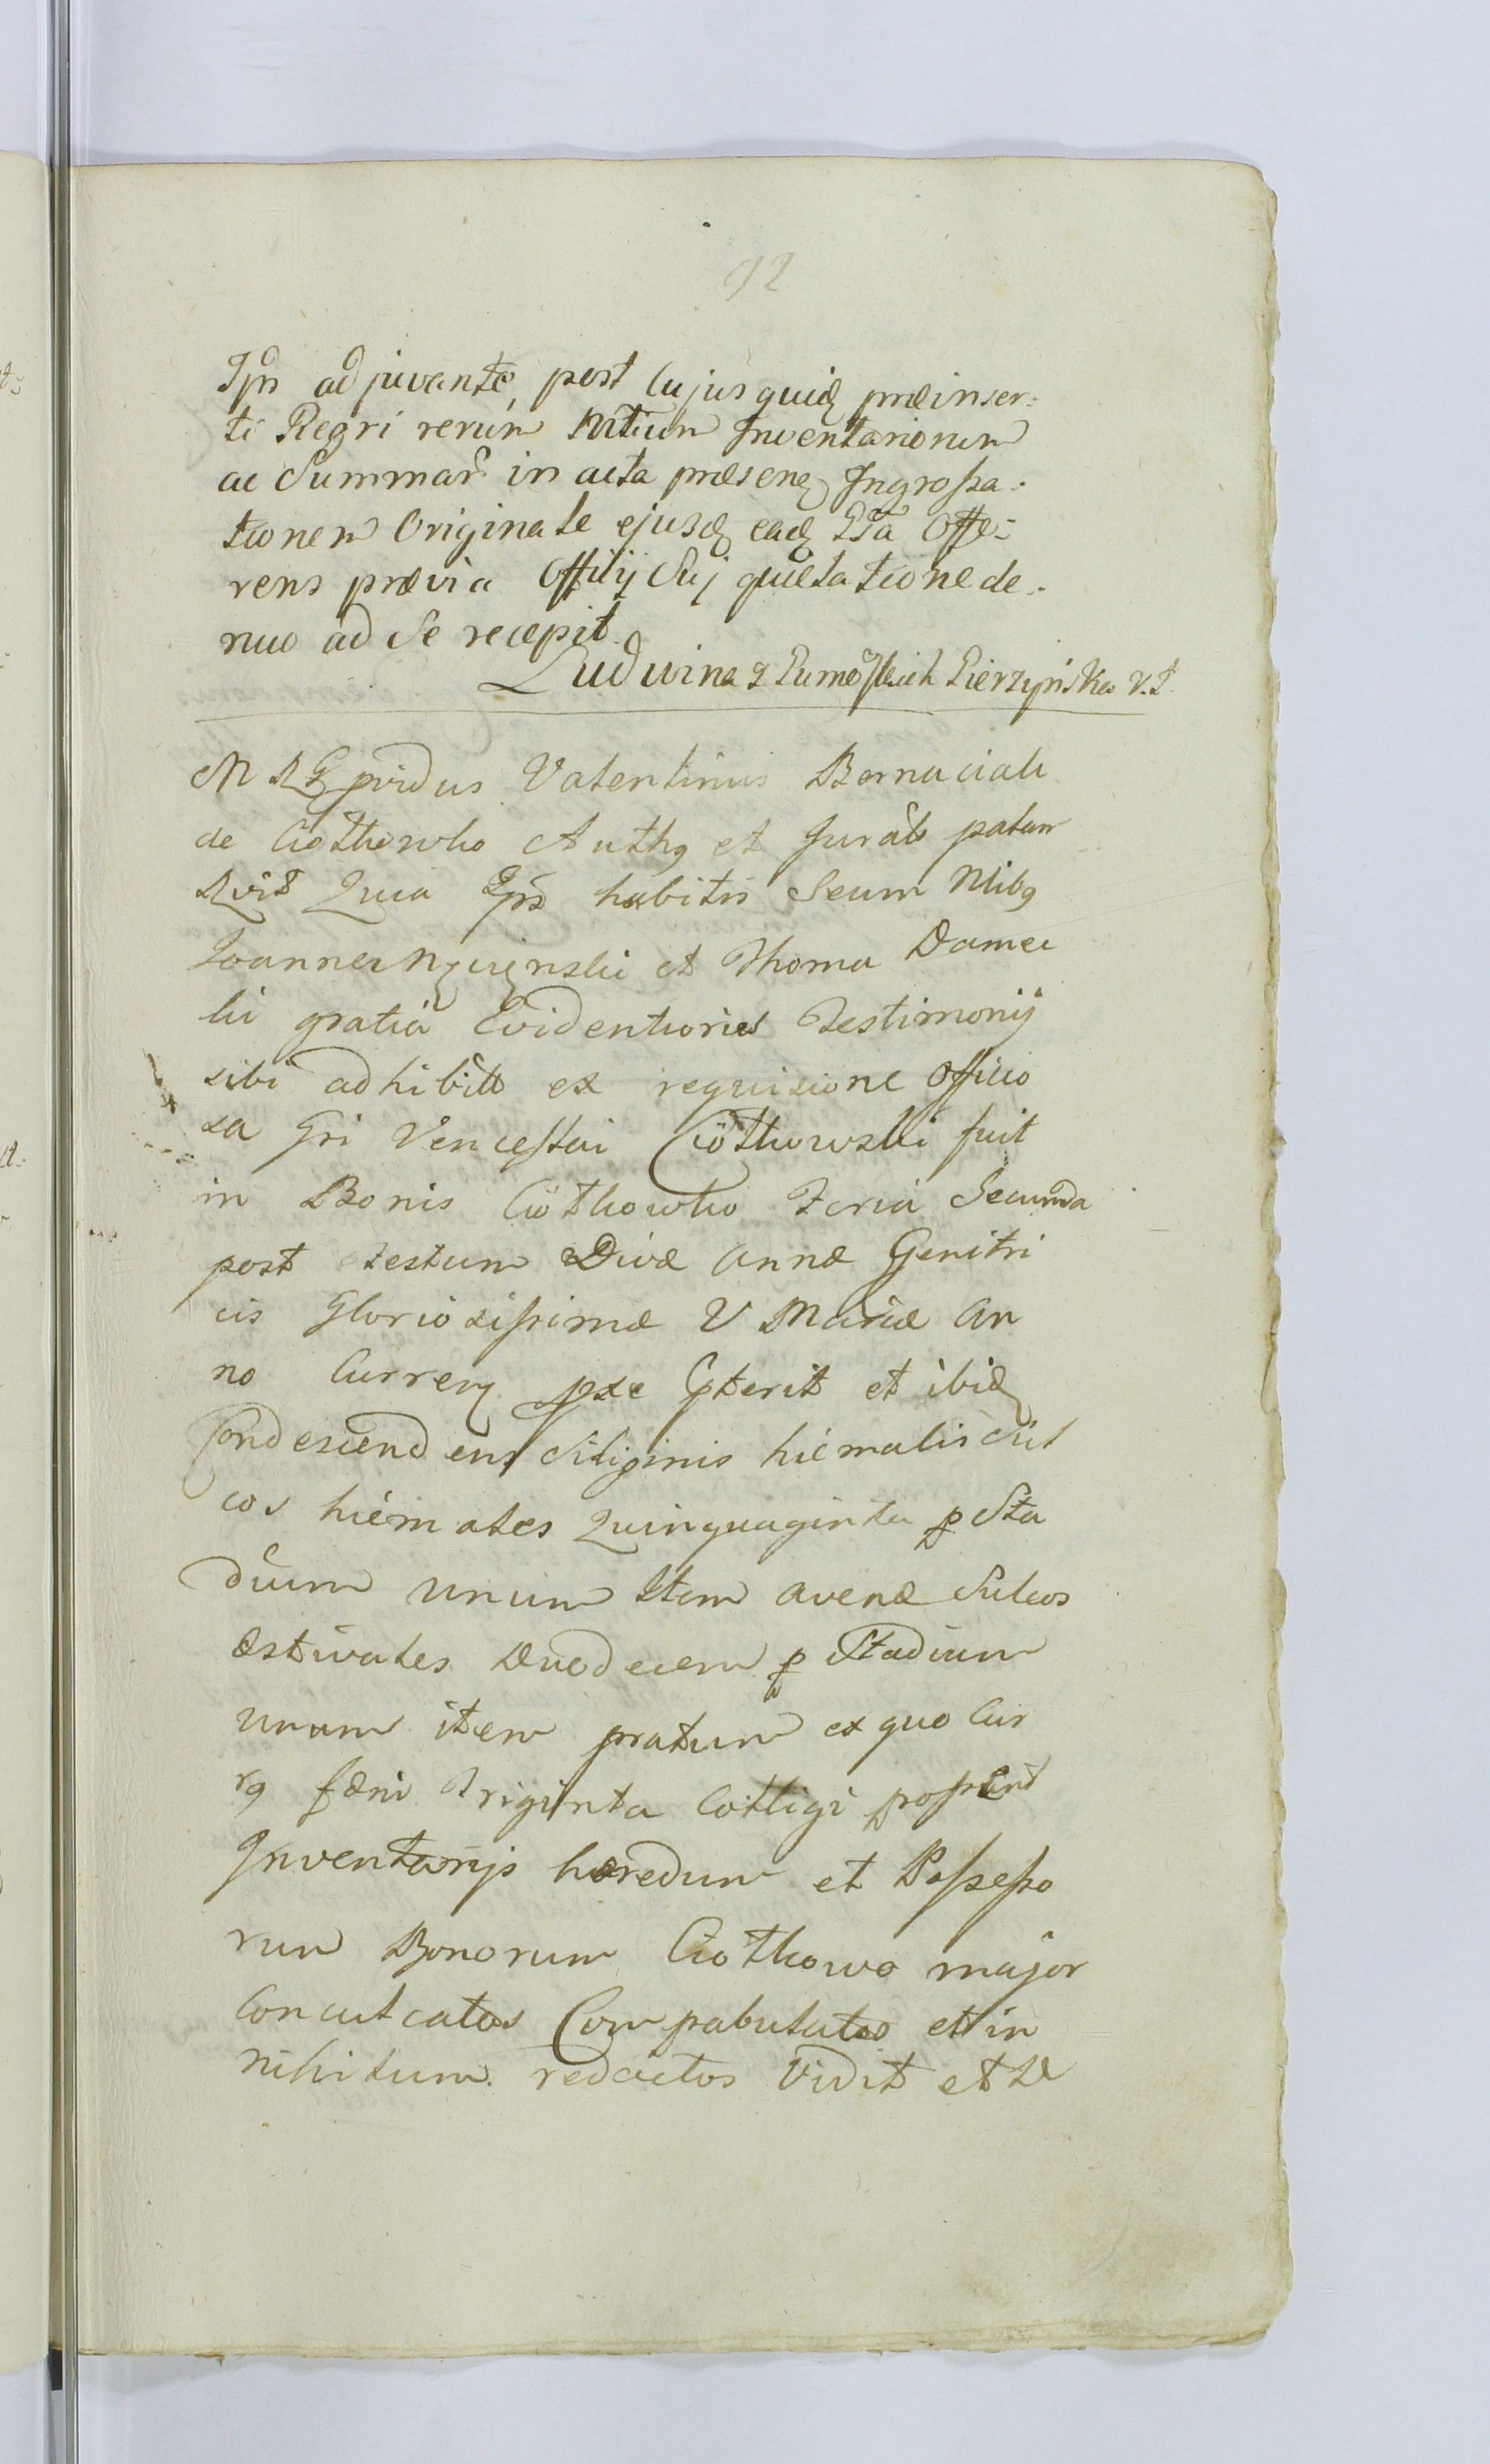 92
Ips adjuvante, post Cujus quidę præinser:
ti Regri rerum Mtium Inventariorum
ac Summar in acta præsenę Ingrossa:
tionem Originale ejusdę eadę Offe:
rens prævia Officij Sui quietatione de:
nuo ad Se recepit.
Ludwina Pierzyńska
M providus Valentinus Bernaciak
de Ciołkowko Auth9 et Jurat palam
Quia habitis Secum Nlib9
Joanne et Thoma Damec
ki gratia Evidentioris Testimonij
sibi adhibitt ex requisicione officio
sa Gri Venceslai Ciołkowski fuit
in Bonis Ciołkowko Feria Secunda
post Festum Divæ Annæ Genitri
cis Gloriosissimæ V Mariæ An
no Curreną pste et ibidę
Condescendens Siliginis hiemalis Sul
cos hiemales Quinquaginta p Sta
dium unum Item avenæ Sulcos
æstivales Duodecem p Stadium
unum item pratum ex quo Cur
r9 fæni Triginta Colligi possent
Inventarijs hæredum et Possesso
rum Bonorum Ciołkowo major
Conculcatos Compabulatos et in
nihilum redactos Vidit et De